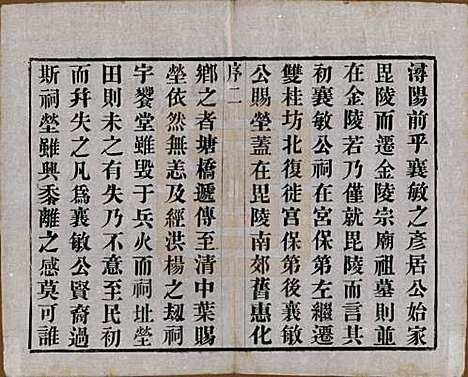 潯陽前乎襄敏之彥居公始家
毘陵而遷金陵宗廟祖墓則並
在金陵若乃僅就毘陵而言
初襄敏公祠在宮保第左繼遷
雙桂坊北復徙宮保第後襄敏
公賜塋蓋在毘陵南郊舊惠化
序二
鄉之耆塘橋遞傳至清中葉賜
塋依然無恙及經洪楊之刧祠
宇饗堂雖毀于兵火而祠址塋
田則未之有失乃不意至民初
而幷失之凡為襄敏公賢裔過
斯祠塋雖興黍離之感莫可誰